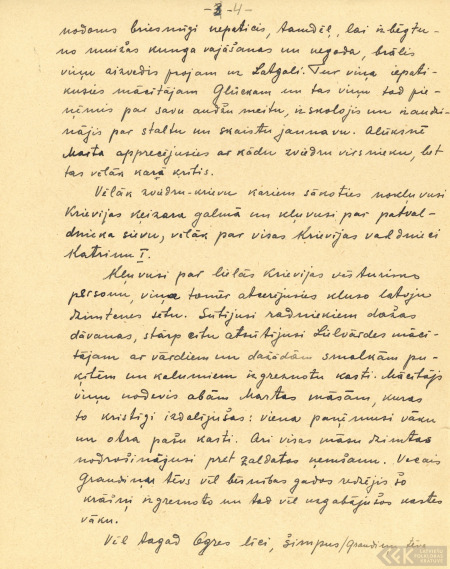 -3-4-
nodoms briesmīgi nepaticis, tamdēļ, lai izbēgtu-
no muižas kunga vajāšanas un negoda, brālis
viņu aizvedis projam uz Latgali. Tur viņa iepati-
kusies mācītājam Glückam un tas viņu tad pie-
ņēmis par savu audžu meitu, izskolojis un izaudzi-
nājis par staltu un skaistu jaunavu. Alūksnē
Marta apprecējusies ar kādu zviedru virsnieku, bet
tas vēlāk karā kritis.
Vēlāk zviedru-krievu kariem sākoties nokļuvusi
Krievijas keizara galmā un kļuvusi par patval-
dnieka sievu, vēlāk par visas Krievijas valdnieci
Katrīnu I.
Kļuvusi par lielās Krievijas vēsturisko
personu, viņa tomēr atcerējusies kluso latvju
dzimtenes sētu. Sūtījusi radniekiem dažas
dāvanas, starp citu atsūtījusi Lielvārdes mācī-
tājam ar vārdiem un dažādām smalkām pu-
ķītēm un kalumiem izgreznotu kasti. Mācītājs
viņu nodevis abām Martas māsām, kuras
to kristīgi izdalījušas: viena paņēmusi vāku
un otra pašu kasti. Arī visas māsu dzimtas
nodrošinājusi pret zaldātos ņemšanu. Vecais
Grandiņa tēvs vēl bērnības gados redzējis šo
krāšņi izgreznoto un tad vēl uzglabājušos kastes
vāku.
Vēl tagad Ogres līcī, Šimpus/Grandiņu
LATVIEŠU FOLKLORAS KRĀTUVE